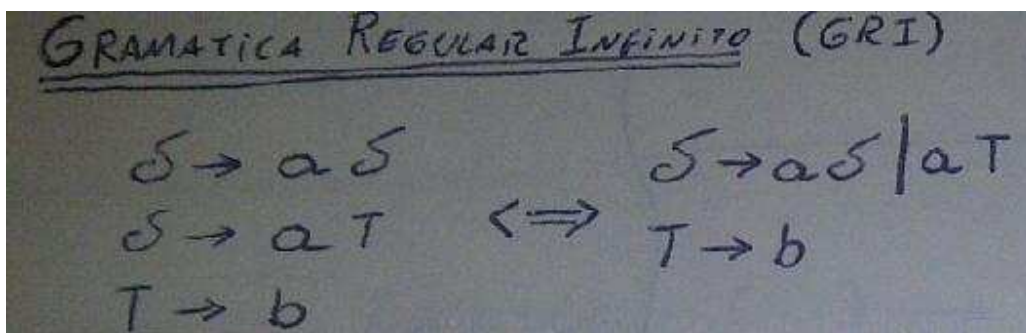 GRAMATICA REGULAR INFINITO (GRI)
S → a S
S → a T
T → b
<=>
S → a S | a T
T → b